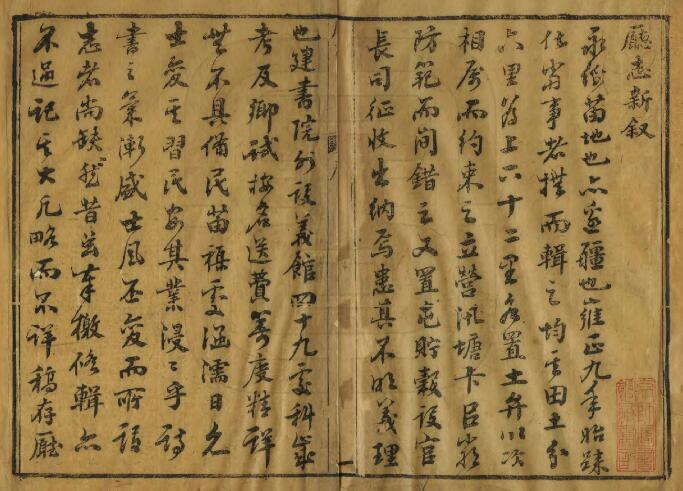 廳志新叙
永綏苗地也亦邊疆也雍正九年始隸
當事者撫而輯之均其田土分
六里為上下十二里各置土弁以次
相属而約束之立營汛塘卡
防範而間錯之又置屯貯穀設官
長司征收出納焉患其不明義理
也建書院列設義館四十九處科歲
考及鄉試按名送費籌度精詳
無不具備民苗裸處涵濡日久
士愛其習民安其業浸〻乎詩
書之氣漸盛士風丕變而所謂
志者尚缺然昔嘗奉檄修輯亦
不過記其大凡略而不詳稿存廳